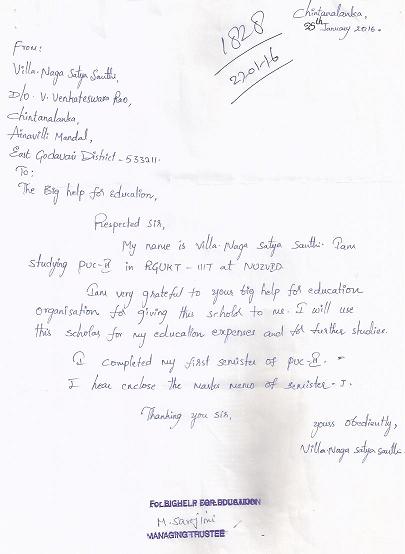 Chintanalanka,
January 2016.
1828
22-01-16
From:
Villa. Naga Satya Santhi,
D/o. V. Venkateswara Rao,
Chintanalanka,
Ainavilli Mandal,
East Godavari District - 533211.
To:
The Big help for education,
Respected Sir,
My name is Villa. Naga Satya Santhi. I am
studying PUC-II in RGUKT - IIIT at NUZVID.
I am very grateful to your big help for education
organisation for giving this scholar to me. I will use
this scholar for my education expenses and for further studies.
I completed my first semister of PUC-II.
I hear enclose the marks memo of semister - I.
Thanking you Sir,
yours obediently,
Villa. Naga Satya Santhi.
For BIGHELP FOR EDUCATION
M. Sarojini
MANAGING TRUSTEE